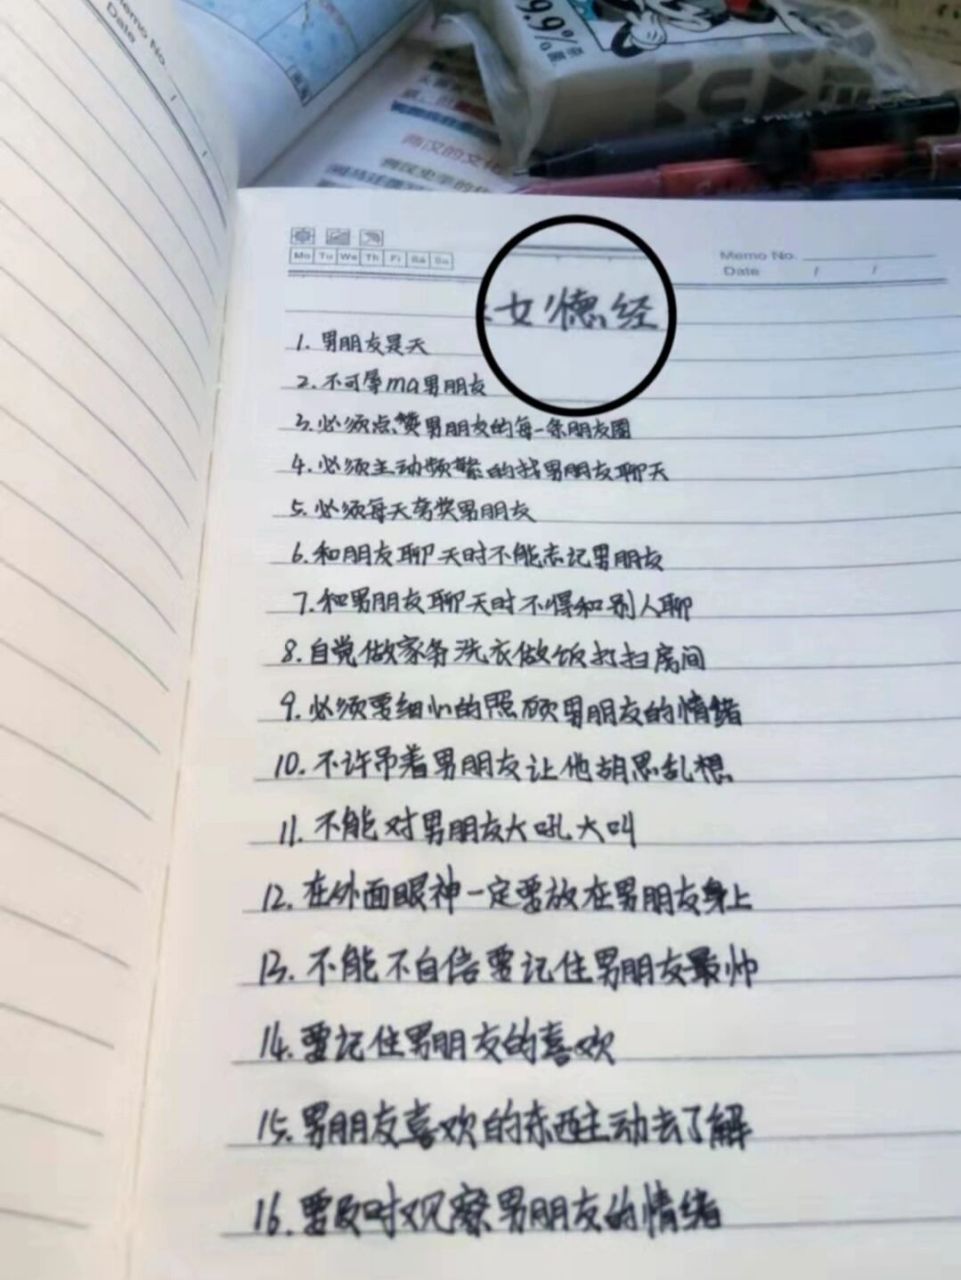 Memo No.
Date
9.9%
两汉的文化
Mo Tu We Th Fr Sa Su
Memo No.
Date / /
女德经
1. 男朋友是天
2. 不可辱ma男朋友
3. 必须点赞男朋友的每一条朋友圈
4. 必须主动频繁的找男朋友聊天
5. 必须每天夸奖男朋友
6. 和朋友聊天时不能忘记男朋友
7. 和男朋友聊天时不得和别人聊
8. 自觉做家务洗衣做饭打扫房间
9. 必须要细心的照顾男朋友的情绪
10. 不许吊着男朋友让他胡思乱想
11. 不能对男朋友大吼大叫
12. 在外面眼神一定要放在男朋友身上
13. 不能不自信要记住男朋友最帅
14. 要记住男朋友的喜欢
15. 男朋友喜欢的东西主动去了解
16. 要及时观察男朋友的情绪